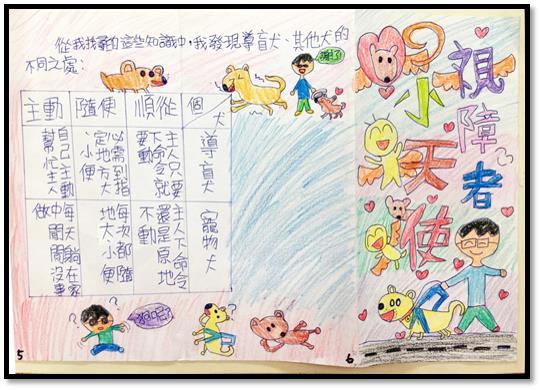 從我找尋的這些知識中，我發現導盲犬、其他犬的
不同之處：
謝了
主動
隨便
順從
個
犬
導盲犬
主人只要
下命令就
要動
心需到指
定地方大
、小便
自己主動
幫忙主人
(寵物犬)
主人下命令
還是原地
不動
每次都隨
地大、小便
每天躺在家
中閒閒沒事
做
狗呢?
5
視障者
小天使
6